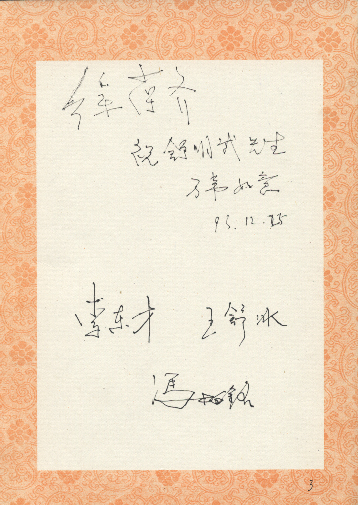 祝舒明武先生
万事如意
93.12.25
李东才 王舒冰
冯柏铭
3